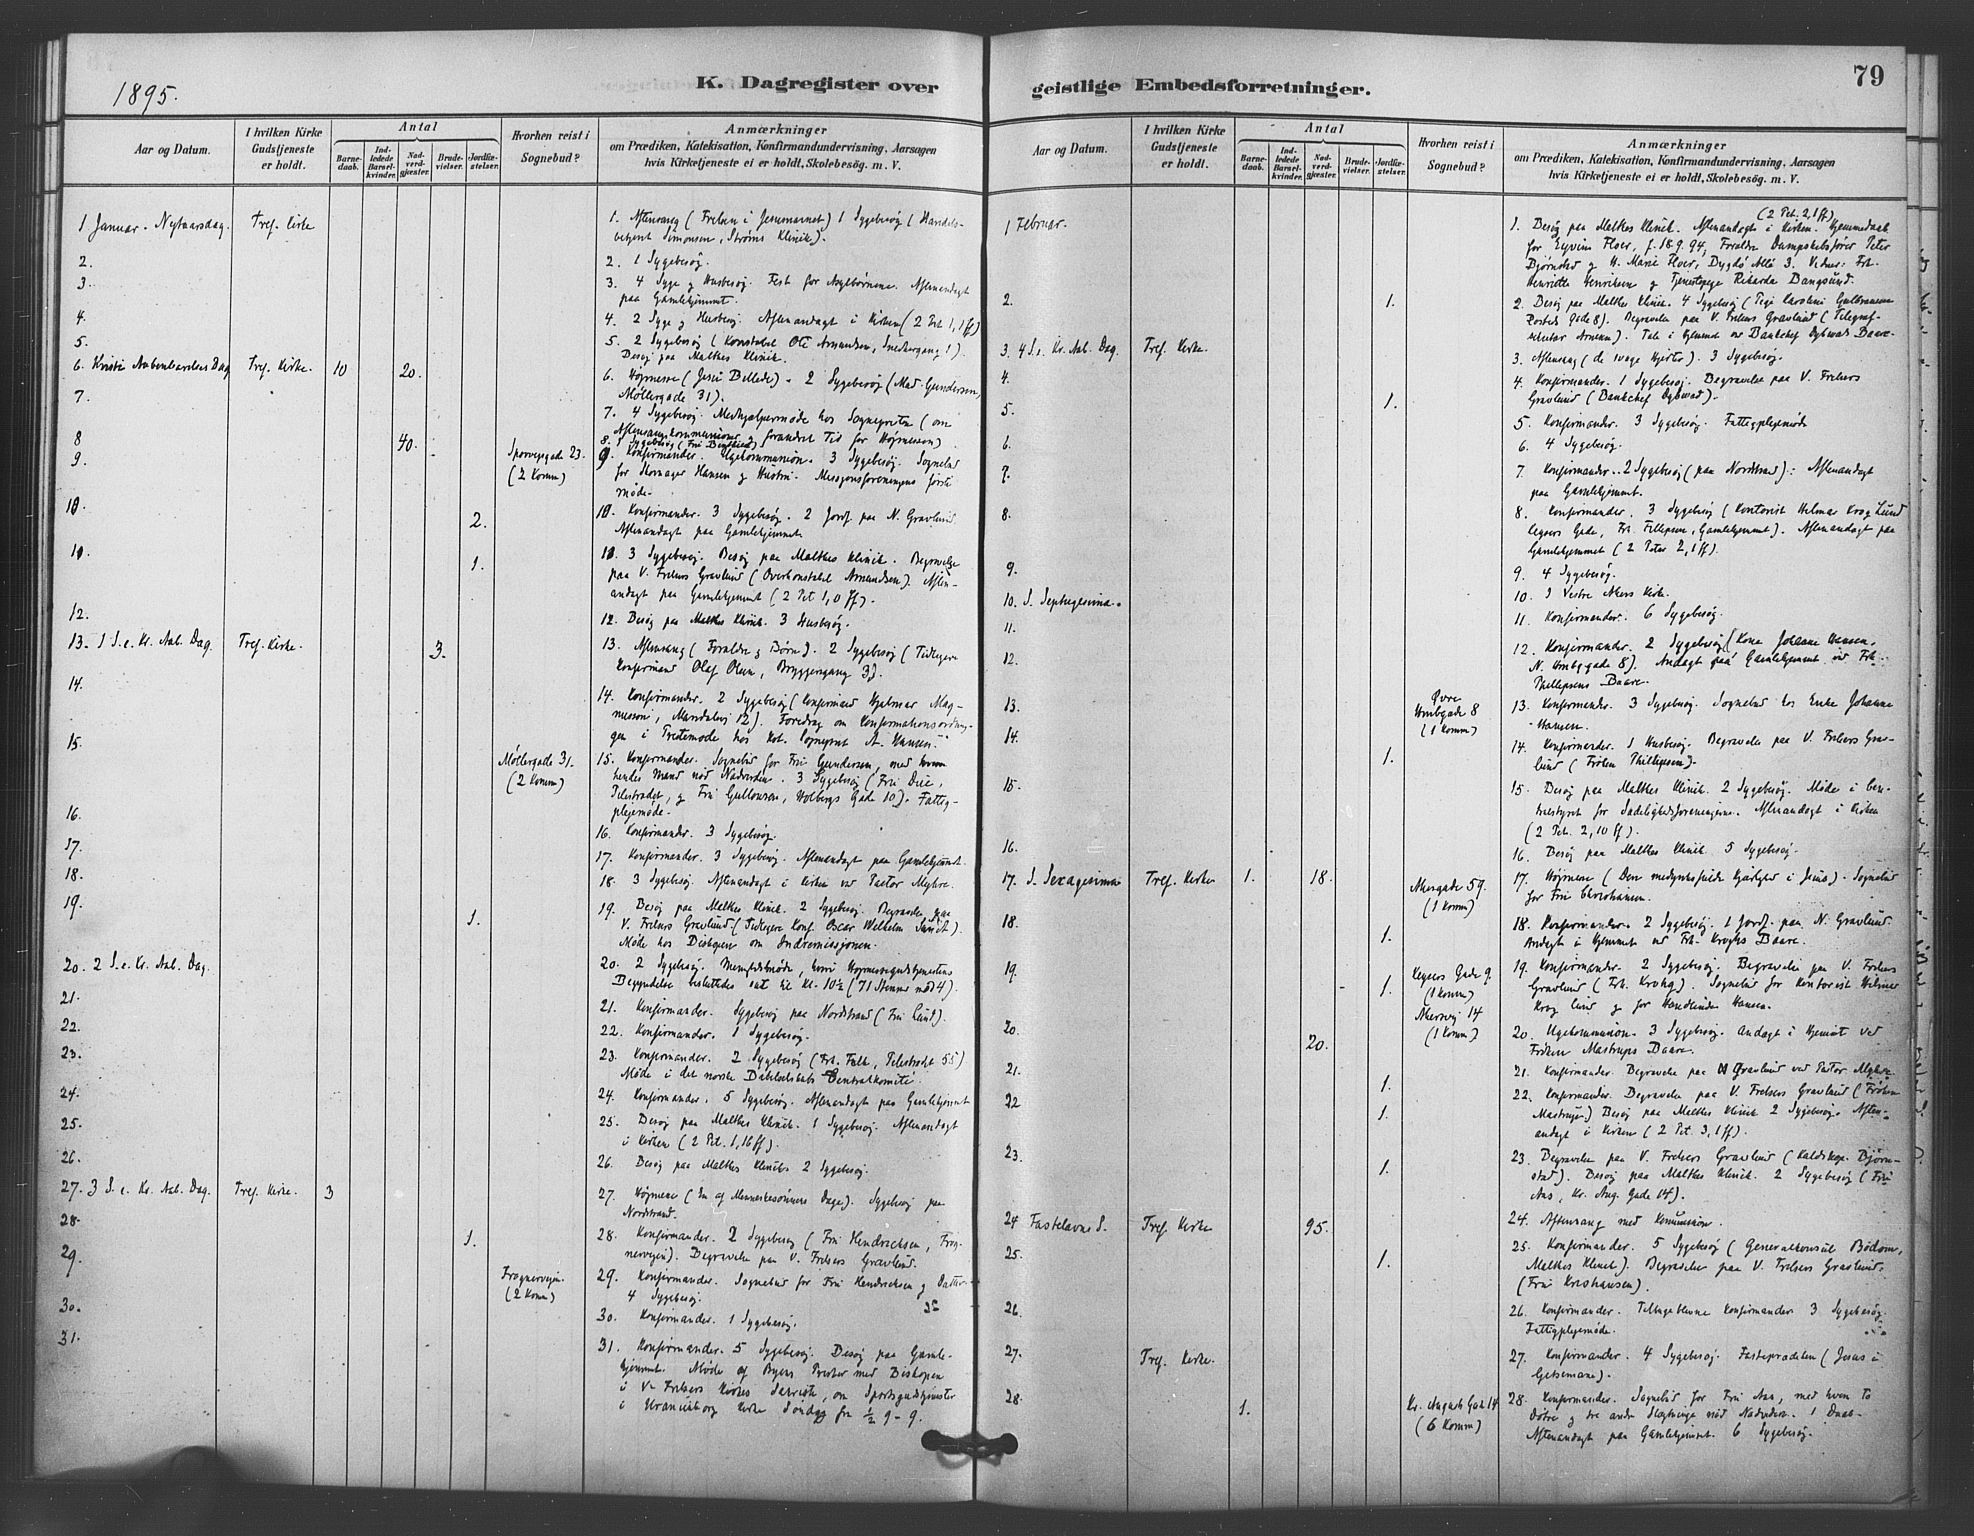 1895.
K. Dagregister over
Aar og Datum.
I hvilken Kirke
Gudstjeneste
er holdt.
Antal
Barne-
daab.
Ind-
ledede
Barsel-
kvinder.
Nad-
verd-
gjæster.
Brude-
vielser.
Jordfæ-
stelser.
Hvorhen reist i
Sognebud?
Anmærkninger
om Prædiken, Katekisation, Konfirmandundervisning, Aarsagen
hvis Kirketjeneste ei er holdt, Skolebesög. m. V.
1 Januar. Nytaarsdag. Tref. Kirke
1. Aftensang (Frelsen i Jesunavnet) 1 Sygebesøg (Handels-
betjent Simonsen, Strøms Klinik).
2. 2. 1 Sygebesøg.
3. 3. 4 Syge og Husbesøg. Fest for Asylbørnene. Aftenandagt
paa Gamlehjemmet.
4. 4. 2 Syge og Husbesøg. Aftenandagt i Kirken (2 Pet 1,1 ff)
5. 5. 2 Sygebesøg (Konstabel Ole Amundsen, Snedkergang 1).
Besøg paa Malthes Klinik.
6. Kristi Aabenbarelses Dag Tref. Kirke. 10 20.
6. Højmesse (Jesu Billede). 2 Sygebesøg (Mad. Gundersen,
Møllergade 31).
7. 7. 4 Sygebesøg. Medhjælpermøde hos Sognepresten (om
Aftensangskommunioner og forandret Tid for Højmessen)
8 40.
8. 1 Sygebesøg
9. Sporvejsgade 23.
(2 Komm)
9. Konfirmander. Ugekommunion. 3 Sygebesøg. Sognebud
for Hansen og Hustru. Missjonsforeningens første
Møde.
10. 2.
10. Konfirmander. 3 Sygebesøg. 2 Jordf. paa N. Gravlund.
Aftenandagt paa Gamlehjemmet.
11. 1.
11. 3 Sygebesøg. Besøg paa Malthes Klinik. Begravelse
paa V. Frelsers Gravlund (Overkonstabel Amundsen). Aften-
andagt paa Gamlehjemmet (2 Pet 1,0 ff).
12. 12. Besøg paa Malthes Klinik. 3 Husbesøg.
13. 1 S. e. Kr. Aab. Dag. Tref. Kirke. 3.
13. Aftensang (Forældre og Børn). 2 Sygebesøg (Tidligere
Konfirmand Olaf Olsen, Bryggergang 3).
14. 14. Konfirmander. 2 Sygebesøg (Konfirmand Hjalmar Mag-
nusson, Maridalsvej 12). Foredrag om Konfirmationsordnin-
gen i Præstemøde hos Kst. Sogneprest A. Hansen.
15. Møllergade 31.
(2 Komm)
15. Konfirmander. Sognebud for Fru Gundersen, med hvem
hendes Mand nød Nadverden. 3 Sygebesøg (Fru Due,
Pilestrædet, og Fru Gulbransen, Holbergs Gade 10). Fattig-
plejemøde.
16. 16. Konfirmander. 3 Sygebesøg.
17. 17. Konfirmander. 3 Sygebesøg. Aftenandagt paa Gamlehjemmet.
18. 18. 3 Sygebesøg. Aftenandagt i Kirken ved Pastor Myhre.
19. 1.
19. Besøg paa Malthes Klinik. 2 Sygebesøg. Begravelse paa
V. Frelsers Gravlund (Tidligere Konf. Oscar Wilhelm
Møde hos Biskopen om Indremissjonen.
20. 2 S. e. Kr. Aab. Dag.
20. 2 Sygebesøg. Menighedsmøde, hvori Højmessegudstjenestens
Begyndelse besluttedes sat til Kl. 10½ (71 Stemmer mod 4).
21. 21. Konfirmander. Sygebesøg paa Nordstrand (Fru Lund).
22. 22. Konfirmander. 1 Sygebesøg.
23. 23. Konfirmander. 2 Sygebesøg (Frk. Falk, Pilestrædet 55)
Møde i det norske Bibelselskabs Centralkomité.
24. 24. Konfirmander. 5 Sygebesøg. Aftenandagt paa Gamlehjemmet
25. 25. Besøg paa Malthes Klinik. 1 Sygebesøg. Aftenandagt
i Kirken (2 Pet. 1,16 ff).
26. 26. Besøg paa Malthes Klinik. 2 Sygebesøg.
27. 3 S. e. Kr. Aab. Dag. Tref. Kirke. 3
27. Højmesse (En af Menneskesønnens Dage). Sygebesøg paa
Nordstrand.
28. 1.
28. Konfirmander. 2 Sygebesøg (Fru Hendricksen, Frog-
nerveien). Begravelse paa V. Frelsers Gravlund.
29. Frognerveien.
(2 Komm)
29. Konfirmander. Sognebud for Fru Hendricksen og Datter.
4 Sygebesøg.
30. 30. Konfirmander. 1 Sygebesøg.
31. 31. Konfirmander. 5 Sygebesøg. Besøg paa Gamle-
hjemmet. Møde af Byens Prester med Biskopen
i Vor Frelsers Kirkes Sakristi, om Sportsgudstjenester
i Uranienborg Kirke Søndag fra ½ 9 - 9.
79
geistlige Embedsforretninger.
Aar og Datum.
I hvilken Kirke
Gudstjeneste
er holdt.
Antal
Barne-
daab.
Ind-
ledede
Barsel-
kvinder.
Nad-
verd-
gjæster.
Brude-
vielser.
Jordfæ-
stelser.
Hvorhen reist i
Sognebud?
Anmærkninger
om Prædiken, Katekisation, Konfirmandundervisning, Aarsagen
hvis Kirketjeneste ei er holdt, Skolebesög. m. V.
1 Februar.
(2 Pet. 2,1 ff)
1. Besøg paa Malthes Klinik. Aftenandagt i Kirken. Hjemmedaab
for Eyvind Floer, f. 18.9.94, Forældre Dampskibsfører Peter
Bjørnstad og H. Marie Floer, Bygdø Allé 3. Vidner: Frk.
Henriette Henriksen og Tjenestepige Rikarda Bangsund.
2. 1.
2. Besøg paa Malthes Klinik. 4 Sygebesøg (Pige Karoline Gulbransen
Gade 8). Begravelse paa V. Frelsers Gravlund (Telegraf-
Tale i Hjemmet ved Bankchef Dybwads Baare.
3. 4 S. e. Kr. Aab. Dag. Tref. Kirke.
3. Aftensang (de svage Hjerter). 3 Sygebesøg.
4. 4. Konfirmander. 1 Sygebesøg. Begravelse paa V. Frelsers
Gravlund (Bankchef Dybwad).
5. 1. 5. Konfirmander. 3 Sygebesøg. Fattigplejemøde
6. 6. 4 Sygebesøg.
7. 7. Konfirmander. 2 Sygebesøg (paa Nordstrand). Aftenandagt
paa Gamlehjemmet.
8. 8. Konfirmander. 3 Sygebesøg (Kontorist Hilmar Krog Lund
Keysers Gade, Frk. Phillipsen, Gamlehjemmet). Aftenandagt paa
Gamlehjemmet (2 Peter 2,1 ff).
9. 9. 4 Sygebesøg.
10. S. Septuagesima. 10. I Vestre Akers Kirke.
11. 11. Konfirmander. 6 Sygebesøg.
12. 12. Konfirmander. 2 Sygebesøg (Kone Johanne Hansen,
Gade 8). Andagt paa Gamlehjemmet ved Frk.
Phillipsens Baare.
13. Øvre
8
(1 Komm)
13. Konfirmander. 3 Sygebesøg. Sognebud hos Enke Johanne
Hansen.
14. 1.
14. Konfirmander. 1 Husbesøg. Begravelse paa V. Frelsers Grav-
lund (Frøken Phillipsen).
15. 15. Besøg paa Malthes Klinik. 2 Sygebesøg. Møde i Cen-
tralstyret for Sædelighedsforeningerne. Aftenandagt i Kirken
(2 Pet. 2,10 ff).
16. 16. Besøg paa Malthes Klinik. 5 Sygebesøg.
17. S. Sexagesima Tref. Kirke 1. 18.
Akersgade 59.
(1 Komm)
17. Højmesse (Den medynksfulde Kjærlighed i Jesus). Sognebud
for Fru Christiansen.
18. 1.
18. Konfirmander. 2 Sygebesøg. 1 Jordf. paa N. Gravlund.
Andagt i Hjemmet ved Frk. Krohgs Baare.
19. 1.
Keysers Gade 9.
(1 Komm)
Akersvej 14
(1 Komm)
19. Konfirmander. 2 Sygebesøg. Begravelse paa V. Frelsers
Gravlund (Frk. Krohg). Sognebud for Kontorist Hilmar
Krog Lund og for Handlende Hansen.
20. 20.
20. Ugekommunion. 3 Sygebesøg. Andagt i Hjemmet ved
Frøken Mastrups Baare.
21. 1. 21. Konfirmander. Begravelse paa N Gravlund ved Pastor Myhre.
22 1.
22. Konfirmander. Begravelse paa V. Frelsers Gravlund (Frøken
Mastrup). Besøg paa Malthes Klinik. 2 Sygebesøg. Aften-
andagt i Kirken (2 Pet. 3,1 ff).
23. 1.
23. Begravelse paa V. Frelsers Gravlund (Bjørn-
stad). Besøg paa Malthes Klinik. 2 Sygebesøg (Fru
Aas, Kr. Aug. Gade 14).
24 Fastelavns S. Tref. Kirke 95. 24. Aftensang med Kommunion.
25. 1.
25. Konfirmander. 5 Sygebesøg (Generalkonsul Bødom,
Malthes Klinik). Begravelse paa V. Frelsers Gravlund.
(Fru Kristiansen).
26. 26. Konfirmander. Tilbageblevne Konfirmander 3 Sygebesøg.
Fattigplejemøde.
27. Tref. Kirke.
27. Konfirmander. 4 Sygebesøg. Fasteprædiken (Jesus i
Getsemane).
28. 1.
Kr. Augusts Gade 14
(6 Komm)
28. Konfirmander. Sognebud for Fru Aas, med hvem to
Døtre og tre andre Slægtninge nød Nadverden. 1 Daab.
Aftenandagt paa Gamlehjemmet. 6 Sygebesøg.